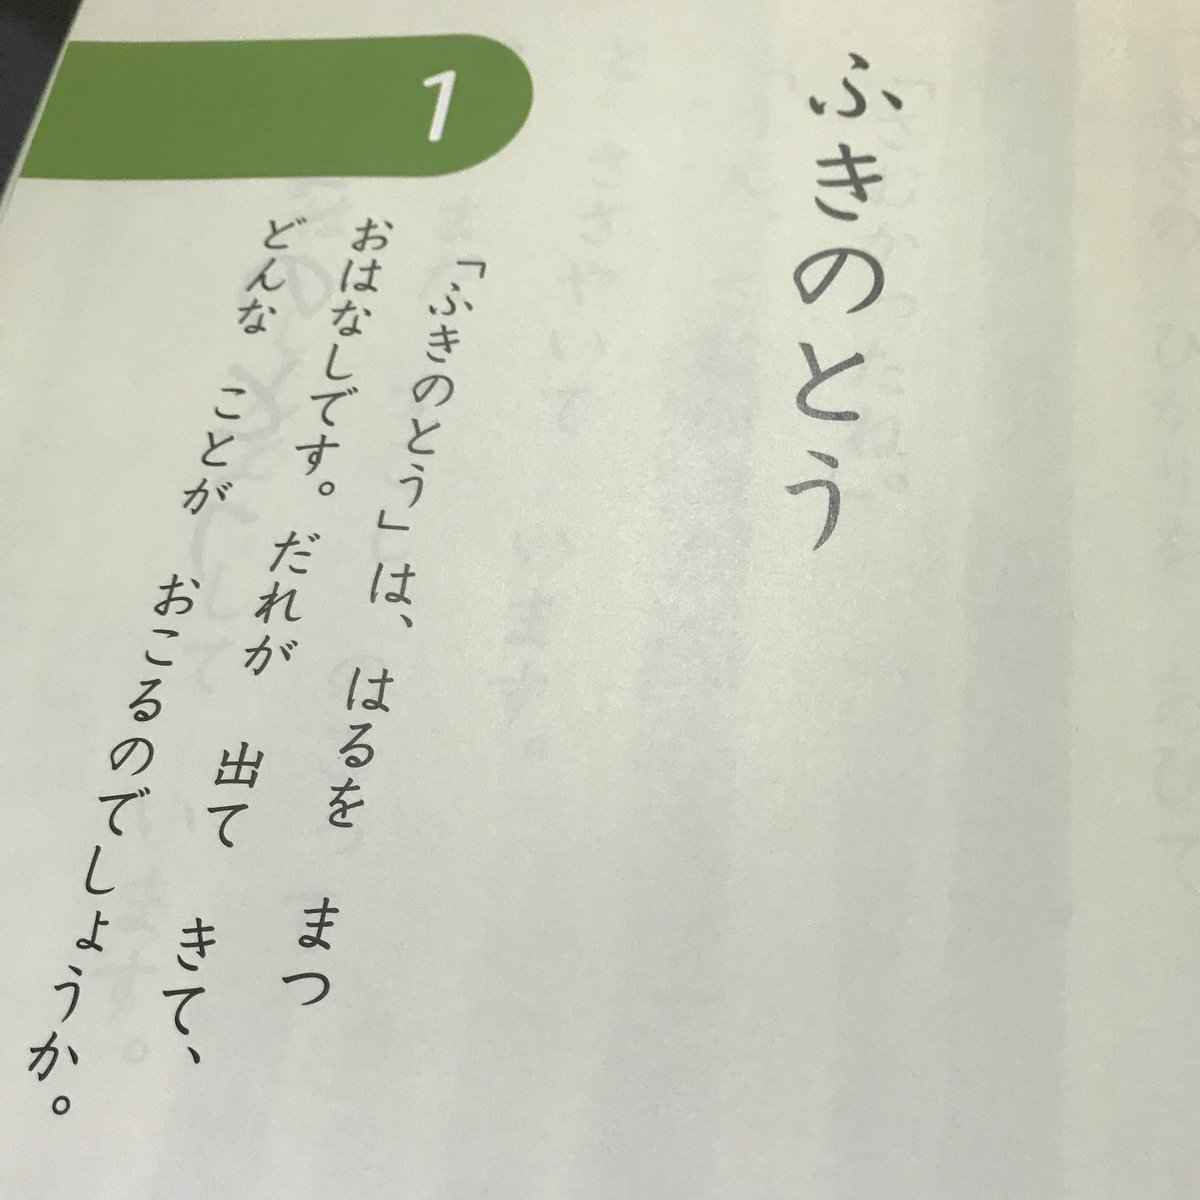 ふきのとう
1
「ふきのとう」は、 はるを まつ
おはなしです。 だれが 出て きて、
どんな ことが おこるのでしょうか。